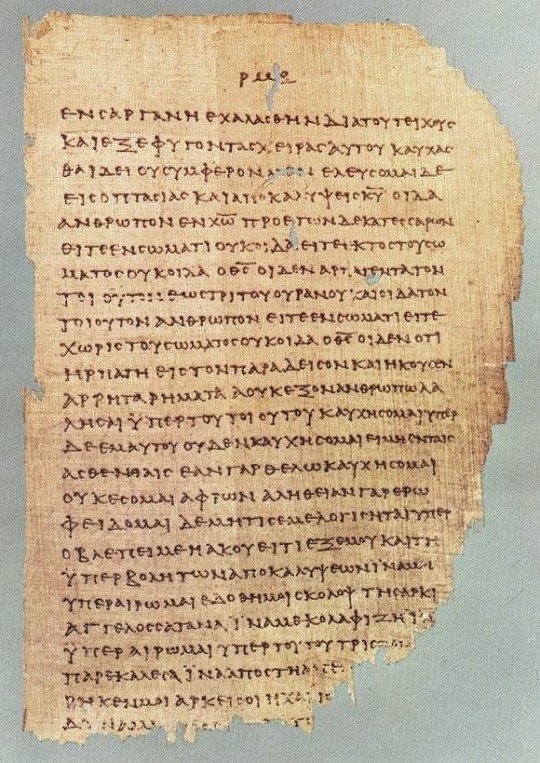 ΕΝ ϹΑΡΓΑΝΗ ΕΧΑΛΑϹΘΗΝ ΔΙΑ ΤΟΥ ΤΕΙΧΟΥϹ
ΚΑΙ ΕΞΕΦΥΓΟΝ ΤΑϹ ΧΕΙΡΑϹ ΑΥΤΟΥ ΚΑΥΧΑϹ
ΘΑΙ ΔΕΙ ΟΥ ϹΥΜΦΕΡΟΝ ΕΛΕΥϹΟΜΑΙ ΔΕ
ΕΙϹ ΟΠΤΑϹΙΑϹ ΚΑΙ ΑΠΟΚΑΛΥΨΕΙϹ Κ̅Υ̅ ΟΙΔΑ
ΑΝΘΡΩΠΟΝ ΕΝ Χ̅Ω̅ ΠΡΟ ΕΤΩΝ ΔΕΚΑΤΕϹϹΑΡΩΝ
ΕΙΤΕ ΕΝ ϹΩΜΑΤΙ ΟΥΚ ΟΙΔΑ ΕΙΤΕ ΕΚΤΟϹ ΤΟΥ ϹΩ
ΜΑΤΟϹ ΟΥΚ ΟΙΔΑ Ο Θ̅Ϲ̅ ΟΙΔΕΝ ΑΡΠΑΓΕΝΤΑ ΤΟΝ
ΤΟΙΟΥΤΟΝ ΕΩϹ ΤΡΙΤΟΥ ΟΥΡΑΝΟΥ ΚΑΙ ΟΙΔΑ ΤΟΝ
ΤΟΙΟΥΤΟΝ ΑΝΘΡΩΠΟΝ ΕΙΤΕ ΕΝ ϹΩΜΑΤΙ ΕΙΤΕ
ΧΩΡΙϹ ΤΟΥ ϹΩΜΑΤΟϹ ΟΥΚ ΟΙΔΑ Ο Θ̅Ϲ̅ ΟΙΔΕΝ ΟΤΙ
ΗΡΠΑΓΗ ΕΙϹ ΤΟΝ ΠΑΡΑΔΕΙϹΟΝ ΚΑΙ ΗΚΟΥϹΕΝ
ΑΡΡΗΤΑ ΡΗΜΑΤΑ Α ΟΥΚ ΕΞΟΝ ΑΝΘΡΩΠΩ ΛΑ
ΛΗϹΑΙ ΫΠΕΡ ΤΟΥ ΤΟΙΟΥΤΟΥ ΚΑΥΧΗϹΟΜΑΙ ΥΠΕΡ
ΔΕ ΕΜΑΥΤΟΥ ΟΥΔΕΝ ΚΑΥΧΗϹΟΜΑΙ ΕΙ ΜΗ ΕΝ ΤΑΙϹ
ΑϹΘΕΝΕΙΑΙϹ ΕΑΝ ΓΑΡ ΘΕΛΩ ΚΑΥΧΗϹΟΜΑΙ
ΟΥΚ ΕϹΟΜΑΙ ΑΦΡΩΝ ΑΛΗΘΕΙΑΝ ΓΑΡ ΕΡΩ
ΦΕΙΔΟΜΑΙ ΔΕ ΜΗ ΤΙϹ ΕΜΕ ΛΟΓΙϹΗΤΑΙ ΥΠΕΡ
Ο ΒΛΕΠΕΙ ΜΕ Η ΑΚΟΥΕΙ ΤΙ ΕΞ ΕΜΟΥ ΚΑΙ ΤΗ
ΫΠΕΡΒΟΛΗ ΤΩΝ ΑΠΟΚΑΛΥΨΕΩΝ ΪΝΑ ΜΗ
ΥΠΕΡΑΙΡΩΜΑΙ ΕΔΟΘΗ ΜΟΙ ϹΚΟΛΟΨ ΤΗ ϹΑΡΚΙ
ΑΓΓΕΛΟϹ ϹΑΤΑΝΑ ΪΝΑ ΜΕ ΚΟΛΑΦΙΖΗ
ΫΠΕΡΑΙΡΩΜΑΙ ΥΠΕΡ ΤΟΥΤΟΥ ΤΡΙϹ
ΠΑΡΕΚΑΛΕϹΑ ΪΝΑ ΑΠΟϹΤΗ ΑΠ
ΡΗΚΕΝ ΜΟΙ ΑΡΚΕΙ ϹΟΙ Η ΧΑΡΙϹ